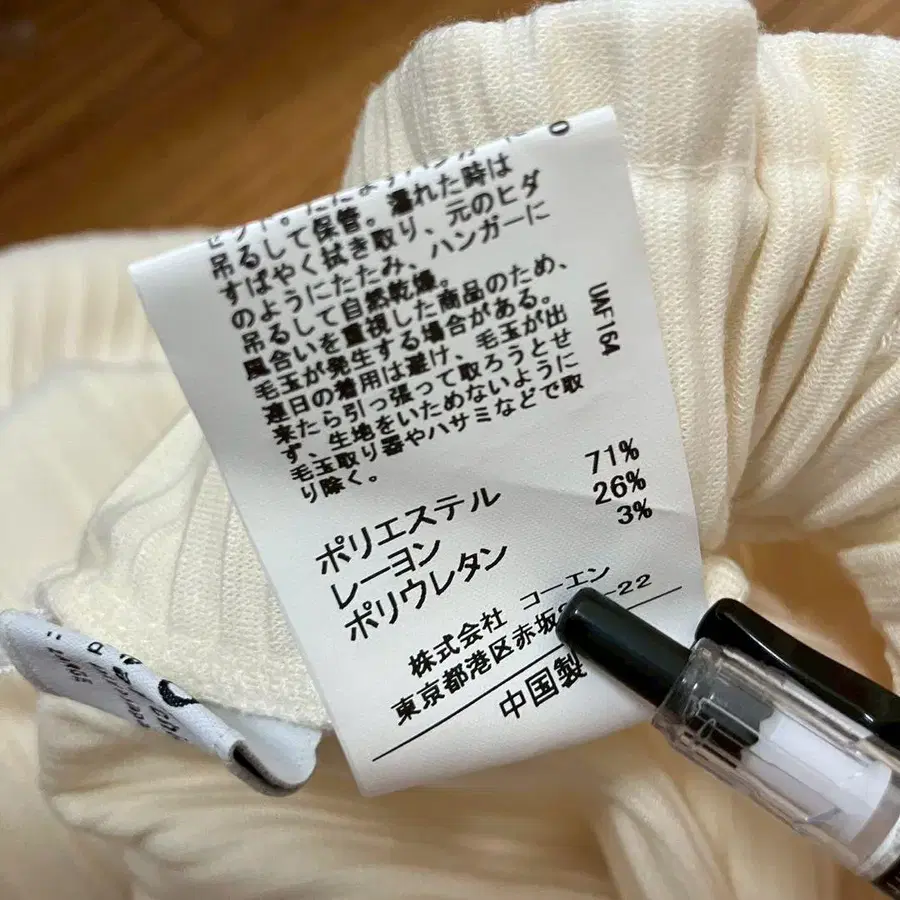 吊るして保管。濡れた時は
すばやく拭き取り、元のヒダ
のようにたたみ、ハンガーに
吊るして自然乾燥。
風合いを重視した商品のため、
毛玉が発生する場合がある。
連日の着用は避け、毛玉が出
来たら引っ張って取ろうとせ
ず、生地をいためないように
毛玉取り器やハサミなどで取
り除く。
UAF164
ポリエステル 71%
レーヨン 26%
ポリウレタン 3%
株式会社 コーエン
東京都港区赤坂 -22
中国製